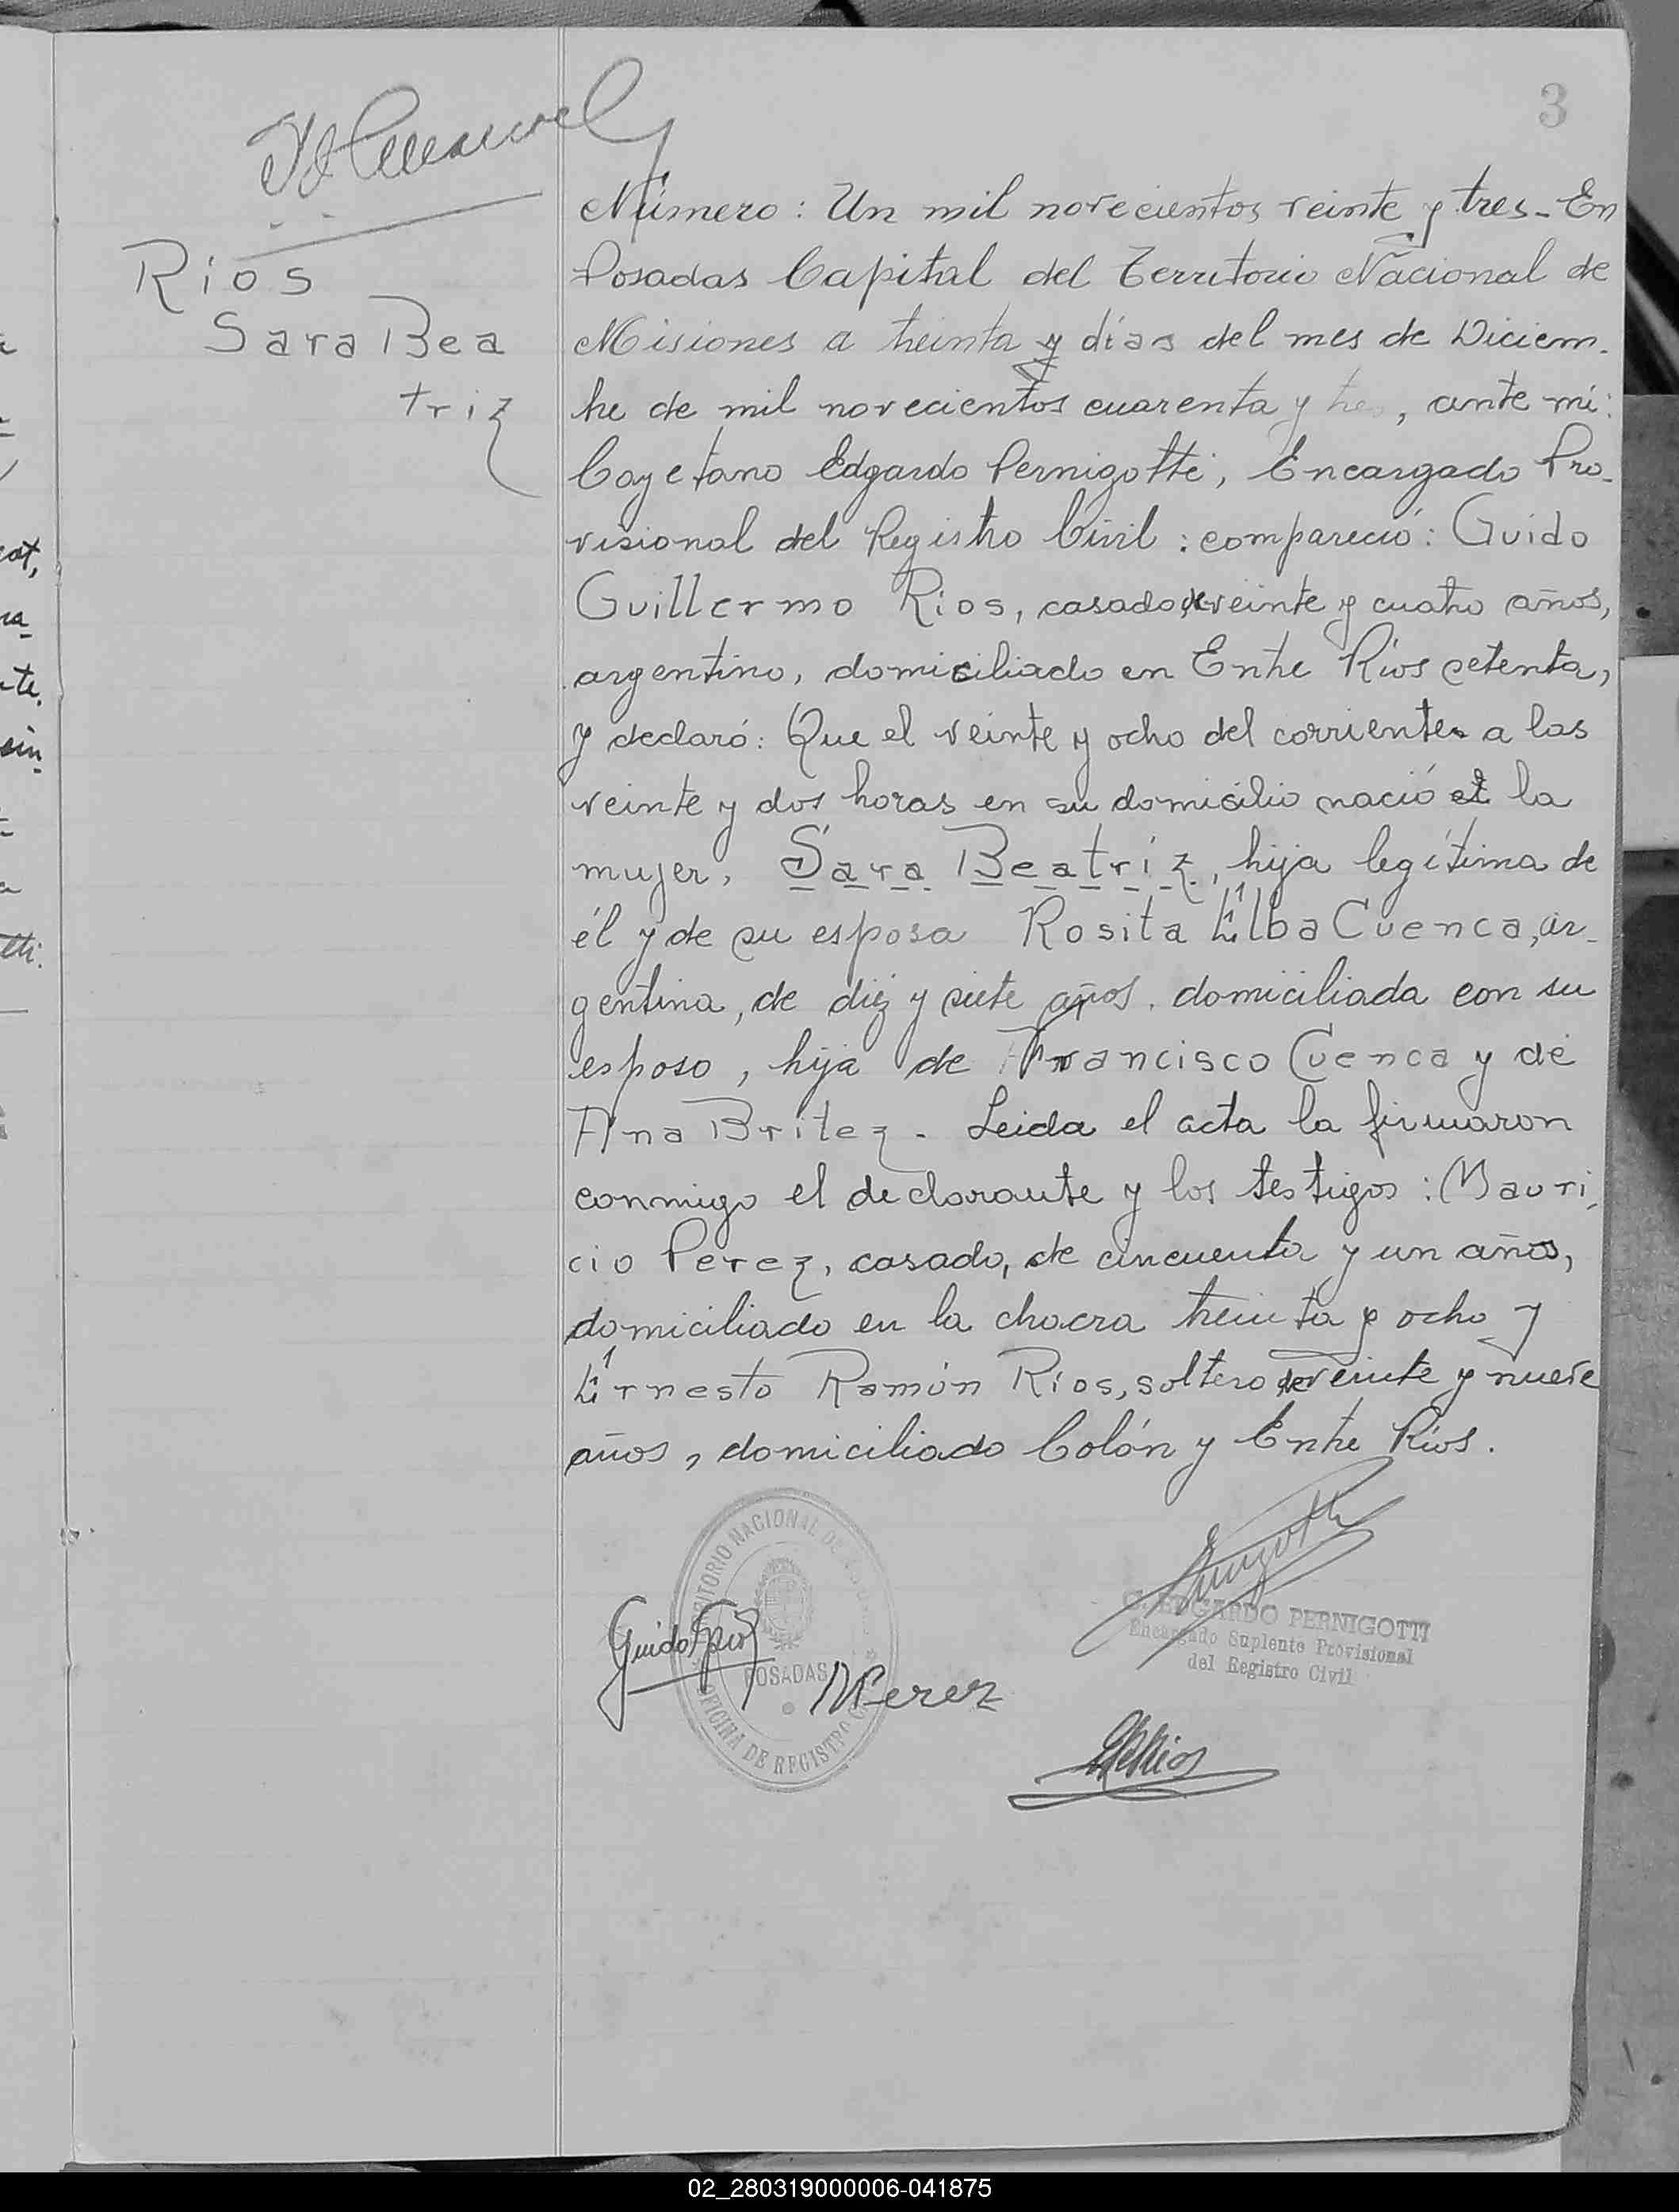 3
Rios
Sara Bea
triz
Número: Un mil novecientos veinte y tres - En
Posadas Capital del Territorio Nacional de
Misiones a treinta y días del mes de Diciem-
bre de mil novecientos cuarenta y tres, ante mi:
Cayetano Edgardo Pernigotti, Encargado Pro-
visional del Registro Civil: compareció: Guido
Guillermo Rios, casado, de veinte y cuatro años,
argentino, domiciliado en Entre Ríos setenta,
y declaró: Que el veinte y ocho del corriente a las
veinte y dos horas en su domicilio nació la
mujer, Sara Beatríz, hija legítima de
él y de su esposa Rosita Elba Cuenca, ar-
gentina, de diez y siete años, domiciliada con su
esposo, hija de Francisco Cuenca y de
Ana Britez. Leida el acta la firmaron
conmigo el declarante y los testigos: Mauri-
cio Perez, casado, de cincuenta y un años,
domiciliado en la chacra treinta y ocho y
Ernesto Ramón Ríos, soltero de veinte y nueve
años, domiciliado Colón y Entre Ríos.
TERRITORIO NACIONAL DE
POSADAS
OFICINA DE REGISTRO
Guido G Rios
M Perez
C. EDGARDO PERNIGOTTI
Encargado Suplente Provisional
del Registro Civil
ERRios
02_280319000006-041875